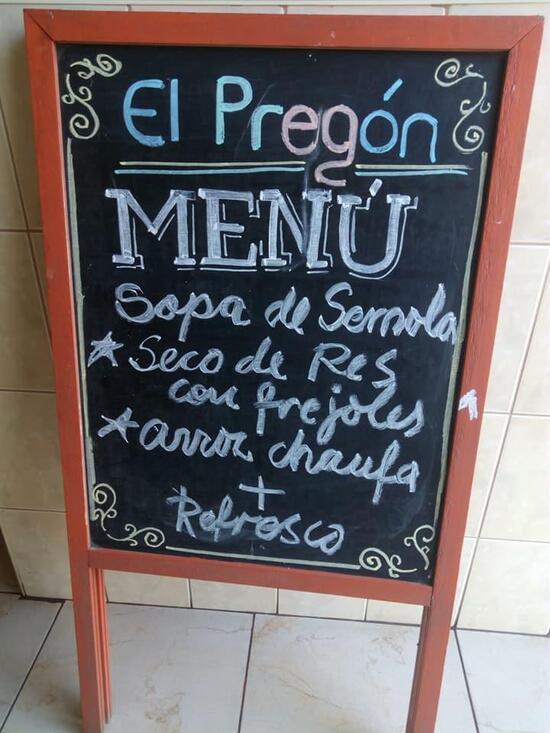 El Pregón
MENÚ
Sopa de Semola
* Seco de Res
con frejoles
* arroz chaufa
+
Refresco